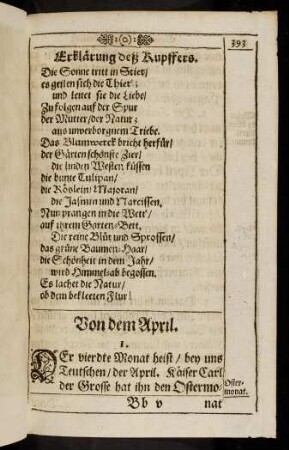 393
Erklärung deß Kupffers.
Die Sonne tritt in Stier/
es geilen sich die Thier;
und leitet sie die Liebe/
Zu folgen auf der Spur
der Mutter/der Natur;
aus unverborgnem Triebe.
Das Blumwerck bricht herfür/
der Gärten schönste Zier/
die linden Westen küssen
die bunte Tulipan/
die Röslein/Majoran/
die Jasmin und Narcissen,
Nun prangen in die Wett/
auf ihrem Garten-Bett,
Die reine Blüt und Sprossen/
das grüne Baumen-Haar/
die Schönheit in dem Jahr/
wird Himmelab begossen.
Es lachet die Natur/
ob dem bekleeten Flur!
Von dem April.
1.
DEr vierdte Monat heist / bey uns
Teutschen/der April. Käiser Carl
der Grosse hat ihn den Ostermo-
Oster-
monat.
Bb v
nat